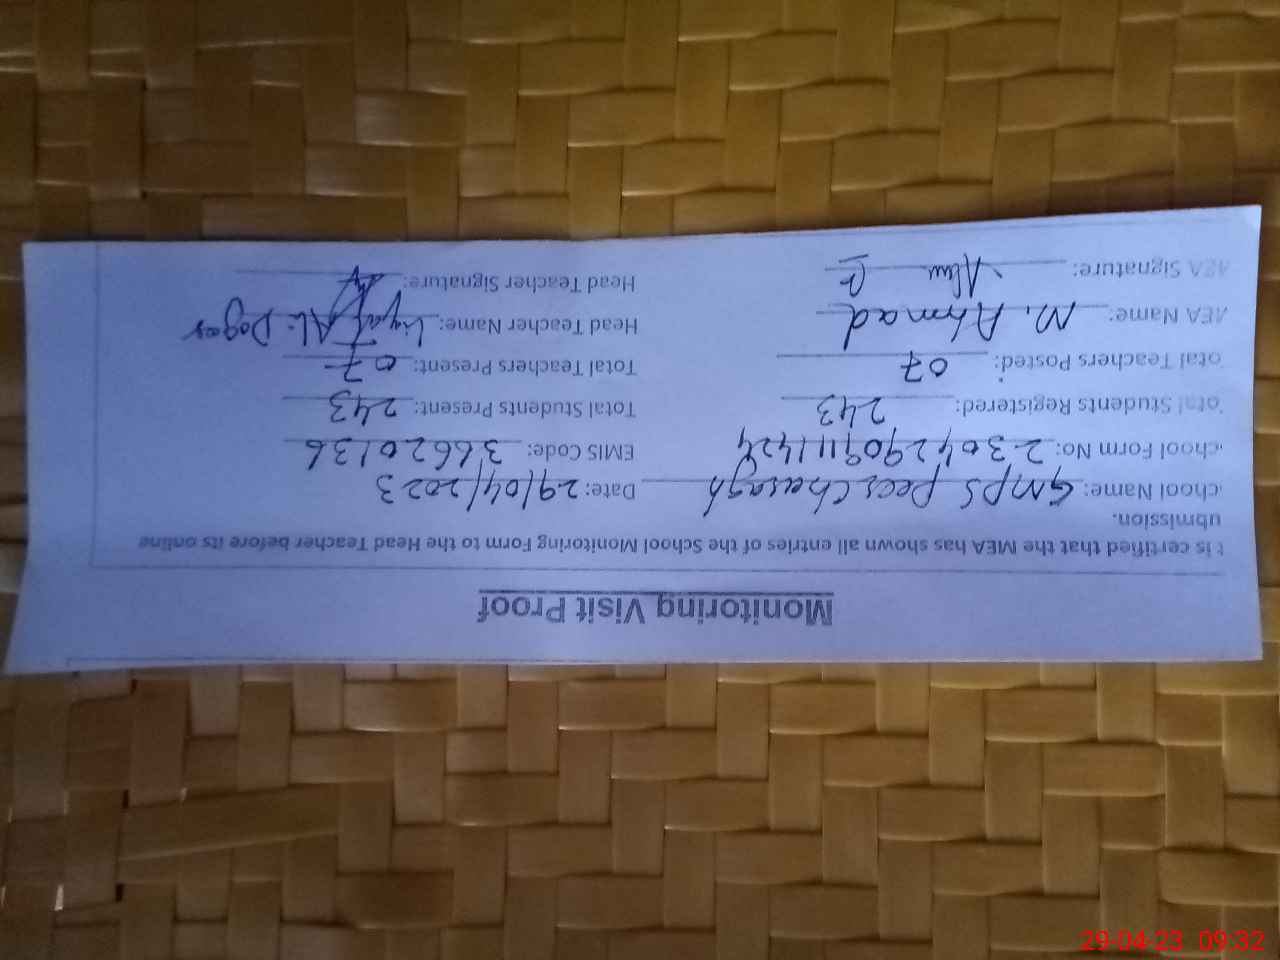 Monitoring Visit Proof
t is certified that the MEA has shown all entries of the School Monitoring Form to the Head Teacher before its online
ubmission.
chool Name: GMPS Peer Charagh Date: 29/04/2023
chool Form No: 230429091111424 EMIS Code: 36620136
Total Students Registered: 243 Total Students Present: 243
otal Teachers Posted: 07 Total Teachers Present: 07
MEA Name: M. Ahmad Head Teacher Name: Liyaqat Ali Dogar
MEA Signature: Head Teacher Signature:
29-04-23 09:32